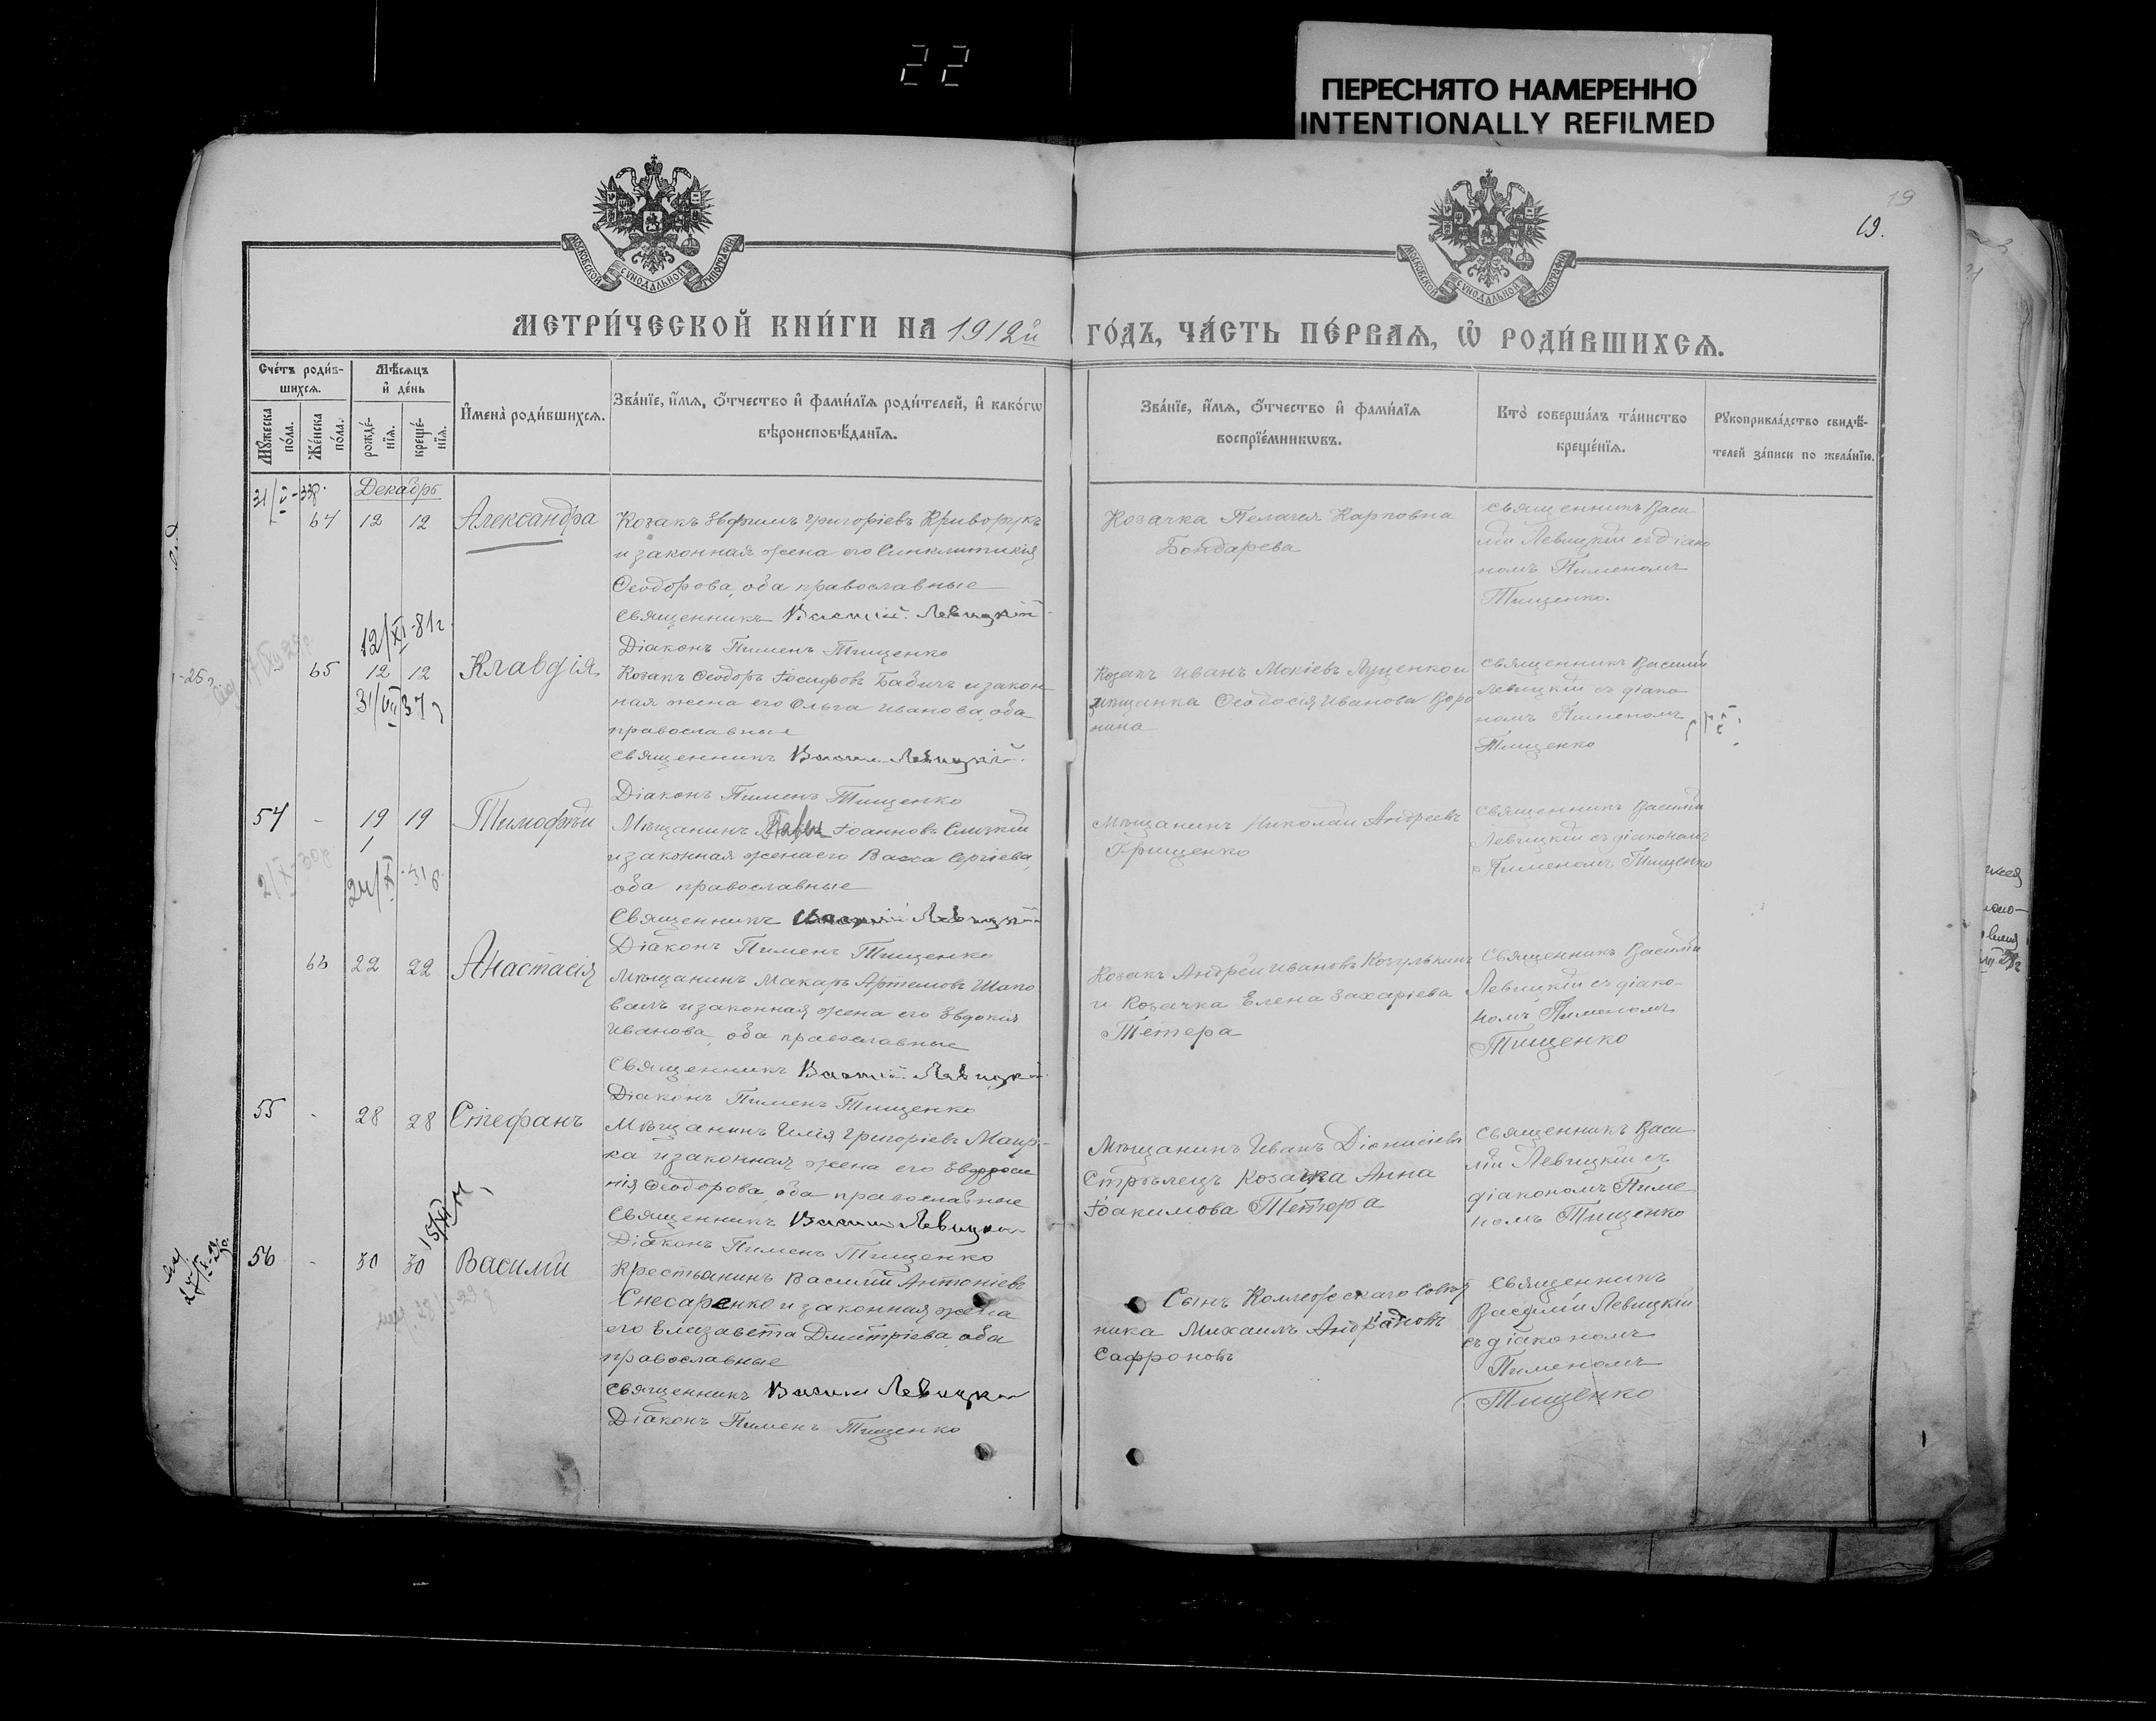 22
ПЕРЕСНЯТО НАМЕРЕННО
INTENTIONALLY REFILMED
19
19.
МОСКОВСКОЙ СѴНОДАЛЬНОЙ ТИПОГРАФІИ
МОСКОВСКОЙ СѴНОДАЛЬНОЙ ТИПОГРАФІИ
МЕТРИ́ЧЕСКОЙ КНИ́ГИ НА 1912й ГО́ДЪ, ЧА́СТЬ ПЕ́РВАѦ, Ѡ҆ РОДИ́ВШИХСѦ.
Сче́тъ роди́в-
шихсѧ.
Мꙋжеска по́ла.
Же́нска по́ла.
Мѣ́сѧцъ
и҆ де́нь
рожде́-
нїѧ.
креще́-
нїѧ.
И҆мена̀ роди́вшихсѧ.
Зва́нїе, и҆́мѧ, ѻ҆́тчество и҆ фамѝлїѧ роди́телей, и҆ како́гѡ
вѣроисповѣ́данїѧ.
Зва́нїе, и҆́мѧ, ѻ҆́тчество и҆ фамѝлїѧ
воспрїе́мникѡвъ.
Кто̀ соверша́лъ та́инство
креще́нїѧ.
Рꙋкоприкла́дство свидѣ́-
телей за́писи по жела́нїю.
Декабрь
64 12 12 Александра
Козакъ Евфимъ Григоріевъ Криворукъ
и законная жена его Синклитикія
Ѳеодорова, оба православные
Священникъ Василій Левицкій
Діаконъ Пименъ Тищенко
Козачка Пелагея Карповна
Бондарева
Священникъ Васи
лій Левицкій съ діако
номъ Пименомъ
Тищенко.
12/XI-81г.
65 12 12 Клавдія
31/VII 37
Козакъ Ѳеодоръ Іосифовъ Бабичъ и закон
ная жена его Ольга Иванова, оба
православные
Священникъ Василій Левицкій
Діаконъ Пименъ Тищенко
Козакъ Иванъ Мокіевъ Луценко и
мѣщанка Ѳеодосія Иванова Воро
нина
Священникъ Василій
Левицкій съ діако
номъ Пименомъ
Тищенко
54 - 19 19 Тимофѣй
Мѣщанинъ Іоанновъ
и законная жена его Васса Сергіева,
оба православные
Священникъ Василій Левицкій
Діаконъ Пименъ Тищенко
Мѣщанинъ Николай Андреевъ
Грищенко
Священникъ Василій
Левицкій съ діакономъ
Пименомъ Тищенко
66 22 22 Анастасія
Мѣщанинъ Макаръ Артемовъ Шапо
валъ и законная жена его Евдокія
Иванова, оба православные
Священникъ Василій Левицкій
Діаконъ Пименъ Тищенко
Козакъ Андрей Ивановъ Козулькинъ
и Козачка Елена Захаріева
Тетера
Священникъ Василій
Левицкій съ діако-
номъ Пименомъ
Тищенко
55 - 28 28 Стефанъ
Мѣщанинъ Илія Григоріевъ
ка и законная жена его Евфроси
нія Ѳеодорова, оба православные
Священникъ Василій Левицкій
Діаконъ Пименъ Тищенко
Мѣщанинъ Иванъ Діонисіевъ
Стрѣлецъ Козачка Анна
Іоакимова Тетера
Священникъ Васи
лій Левицкій съ
діакономъ Пиме
номъ Тищенко
56 - 30 30 Василій
Крестьянинъ Василій Антоніевъ
Снесаренко и законная жена
его Елизавета Дмитріева, оба
православные
Священникъ Василій Левицкій
Діаконъ Пименъ Тищенко
Сынъ Коллежскаго Совѣт
ника Михаилъ
Сафроновъ
Священникъ
Василій Левицкій
съ діакономъ
Пименомъ
Тищенко